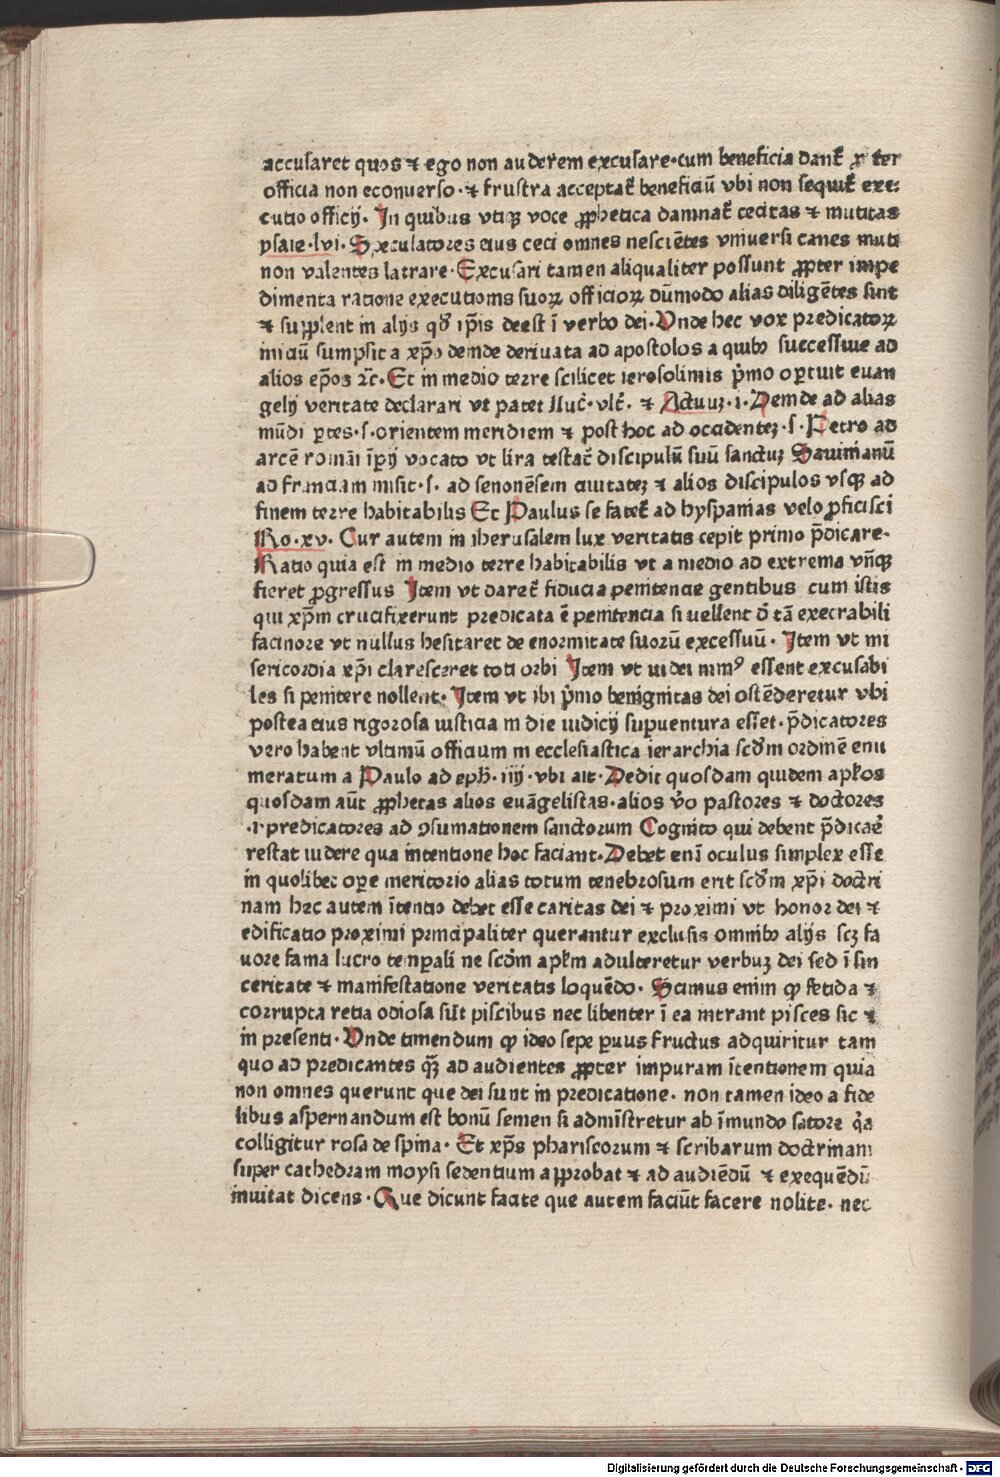 accusaret quos ⁊ ego non auderem excusare·cum beneficia danť ter
officia non econuerso·⁊ frustra acceptať beneficiū vbi non sequiť exe:
cutio officij· In quibus vtiqꝫ voce ꝓphetica damnať cecitas ⁊ mutitas
ysaie·lvi· Speculatores eius ceci omnes nesciētes vniuersi canes muti
non valentes latrare· Excusari tamen aliqualiter possunt ꝓpter impe
dimenta ratione executionis suoꝝ officioꝝ dūmodo alias diligētes sint
⁊ supplent in alijs qđ ip̄is deest ī verbo dei· Vnde hec vox predicatoꝝ
iniciū sumpsit a xp̄o deinde deriuata ad apostolos a quibꝫ successiue ad
alios ep̄oꝫ ⁊c̄· Et in medio terre scilicet ierosolimis p̄mo oꝑtuit euan
gelij veritate declarari vt patet Luc̄· vlt̄· ⁊ Actuuꝫ·i· Deinde ad alias
mūdi ꝑtes·s·orientem meridiem ⁊ post hoc ad occidenteꝫ·s· Petro ad
arcē romāi īp̄ij vocato vt lira testať discipulū suū sanctuꝫ Sauinianū
ad franciam misit·s· ad senonēsem ciuitateꝫ ⁊ alios discipulos vsqꝫ ad
finem terre habitabilis Et Paulus se fateť ad hyspanias velo ꝓficisci
Ro·xv· Cur autem in iherusalem lux veritatis cepit primo p̄dicare·
Ratio quia est in medio terre habitabilis vt a medio ad extrema vn̄qꝫ
fieret ꝓgressus Item vt dareť fiducia penitencie gentibus cum istis
qui xp̄m crucifixerunt predicata ē penitencia si uellent ō tā execrabili
facinore vt nullus hesitaret de enormitate suorū excessuū· Item vt mi
sericordia xp̄i claresceret toti orbi Item vt iudei nimꝰ essent excusabi
les si penitere nollent· Item vt ibi p̄mo benignitas dei ostēderetur vbi
postea eius rigorosa iusticia in die iudicij supuentura esset· p̄dicatores
vero habent vltimū officium in ecclesiastica ierarchia scđm ordinē enu
meratum a Paulo ad eph̄·iiij·vbi ait· Dedit quosdam quidem apl̄os
quosdam aūt ꝓphetas alios euāgelistas·alios v̄o pastores ⁊ doctores
·i·predicatores ad ꝯsumationem sanctorum Cognito qui debent p̄dicaē
restat uidere qua intentione hoc faciant· Debet enī oculus simplex esse
in quolibet oꝑe meritorio alias totum tenebrosum erit scđm xp̄i doctri
nam hec autem ītentio debet esse caritas dei ⁊ proximi vt honor dei ⁊
edificatio proximi principaliter querantur exclusis omnibꝫ alijs scꝫ fa
uore fama lucro temꝑali ne scđm apl̄m adulteretur verbuꝫ dei sed ī sin
ceritate ⁊ manifestatione veritatis loquēdo· Scimus enim ꝙ fetida ⁊
corrupta retia odiosa sūt piscibus nec libenter ī ea intrant pisces sic ⁊
in presenti· Vnde timendum ꝙ ideo sepe paruus fructus adquiritur tam
quo ad predicantes qꝫ̄ ad audientes ꝓpter impuram ītentionem quia
non omnes querunt que dei sunt in predicatione· non tamen ideo a fide
libus aspernandum est bonū semen si admīstretur ab īmundo satore q̄a
colligitur rosa de spina· Et xp̄s phariseorum ⁊ scribarum doctrinam
super cathedram moysi sedentium approbat ⁊ ad audiēdū ⁊ exequēdū
inuitat dicens· Que dicunt facite que autem faciūt facere nolite· nec
Digitalisierung gefördert durch die Deutsche Forschungsgemeinschaft - DFG